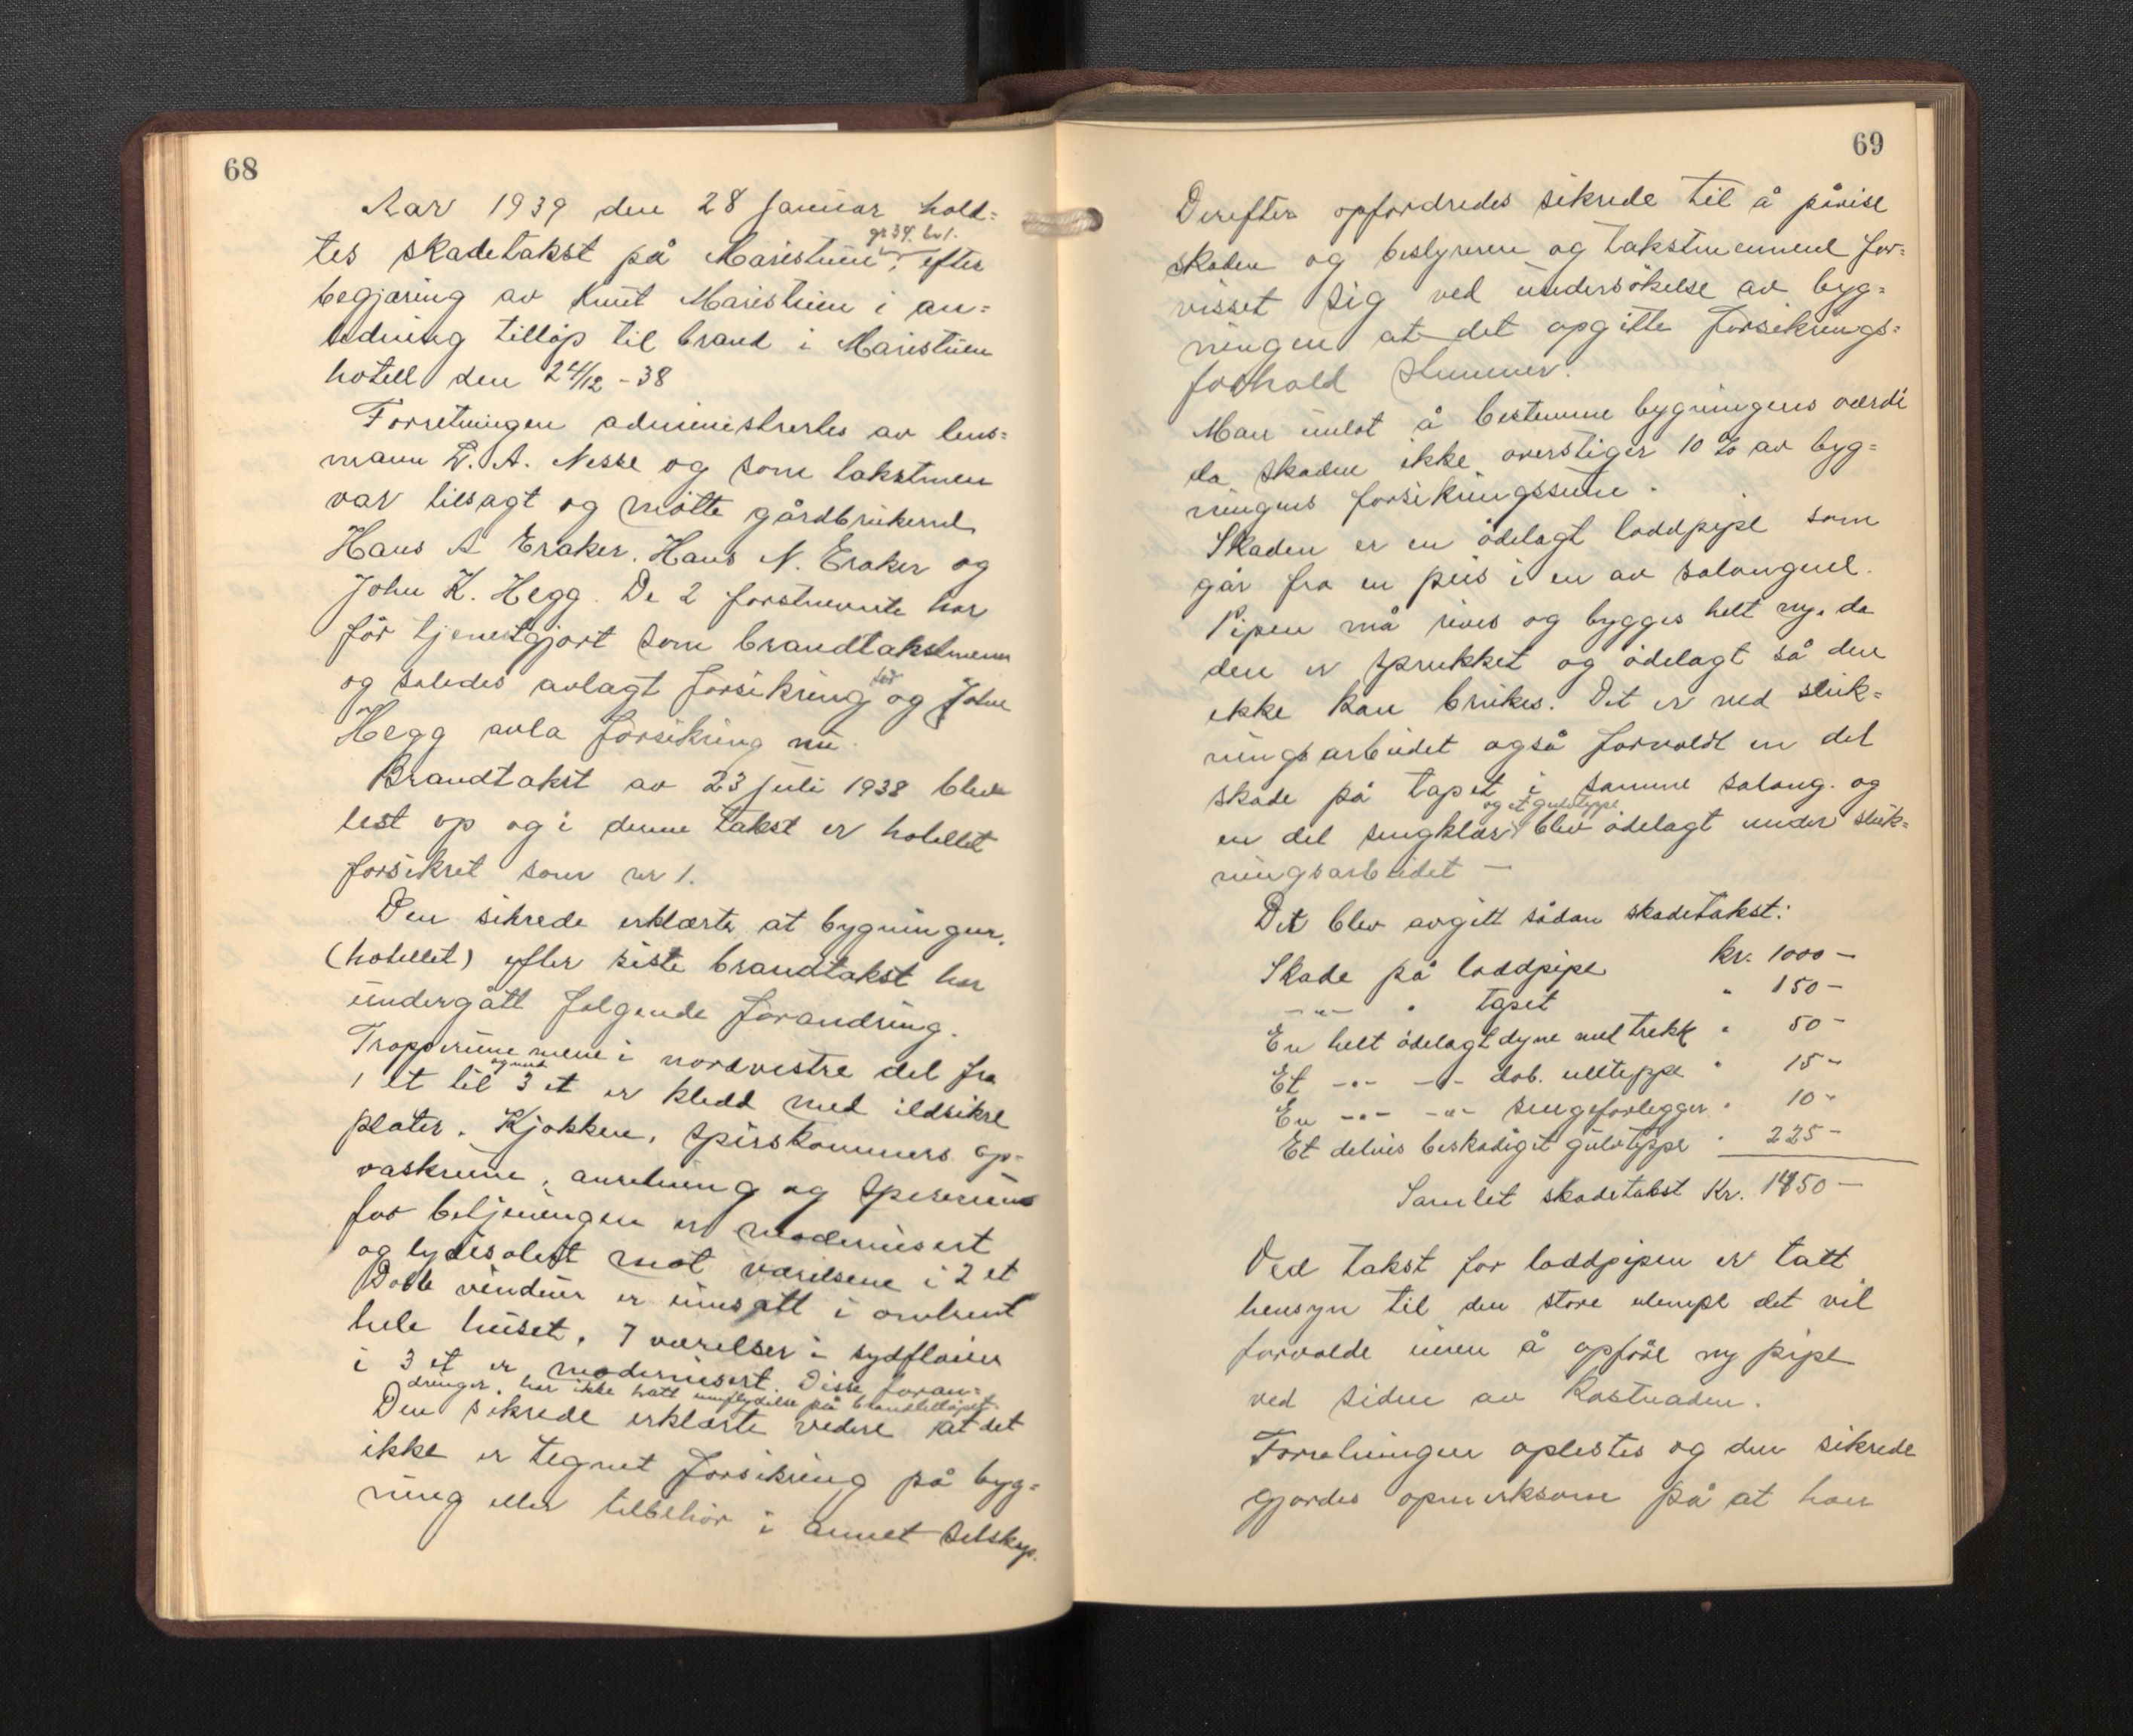 68
Aar 1939 den 28 januar hold=
tes skadetakst på Maristuen, gr 34. br 1. efter
begjæring av Knut Maristuen i an=
ledning tilløp til brand i Maristuen
hotell den 24/12 - 38
Forretningen administrertes av lens=
mann A. Nesse og som takstmen
var tilsagt og møtte gårdbrukerne
Hans A Eraker. Hans N. Eraker og
John K. Hegg. De 2 førstnevnte har
før tjenestgjort som brandtakstmenn
og således avlagt forsikring og John
Hegg avla forsikring nu.
Brandtakst av 23 juli 1938 blev
lest op og i denne takst er hotellet
forsikret som nr 1.
Den sikrede erklærte at bygningen,
(hotellet) efter siste brandtakst har
undergått følgende forandring.
Tropperummene i nordvestre del fra
1 et til og med 3 et er kledd med ildsikre
plater. Kjøkken, spiskammers op=
vaskrum, anretning og spiserum
for betjeningen er modernisert
og lydisolert mot værelsene i 2 et
Doble vinduer er innsatt i omtrent
hele huset. 7 værelser i sydfløien
i 3 et er modernisert. Disse foran=
dringer, har ikke hatt innflydelse på brandtilløpet.
Den sikrede erklærte videre at det
ikke er tegnet forsikring på byg=
ning eller tilbehør i annet selskap.
69
Derefter opfordredes sikrede til å påvise
skaden og bestyreren og takstmennene for=
visset sig ved undersøkelse av byg=
ningen at det opgitte forsikrings=
forhold stemmer.
Man unlot å bestemme bygningens værdi
da skaden ikke overstiger 10 % av byg=
ningens forsikringssum.
Skaden er en ødelagt loddpipe som
går fra en peis i en av salongene.
Pipen må rives og bygges helt ny, da
den er sprukket og ødelagt så den
ikke kan brukes. Det er ved sluk=
ningsarbeidet også forvoldt en del
skade på tapet i samme salong. og
en del sengklær og et gulvteppe blev ødelagt under sluk=
ningsarbeidet —
Det blev avgitt sådan skadetakst:
Skade på loddpipe kr. 1000 -
-"- " tapet " 150 -
En helt ødelagt dyne med trekk " 50 -
Et -"- -"- dob. ullteppe " 15 -
En -"- -"- sengeforlegger " 10 -
Et delvis beskadiget gulvteppe " 225 -
Samlet skadetakst Kr. 1450 -
Ved takst for loddpipen er tatt
hensyn til den store ulempe det vil
forvolde innen å opføre ny pipe
ved siden av kostnaden.
Forretningen oplestes og den sikrede
gjordes opmerksom på at han